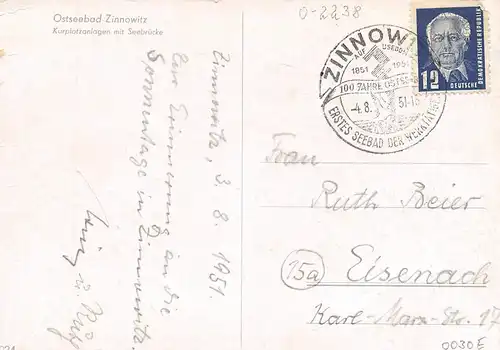 Ostseebad Zinnowitz
Kurplatzanlagen mit Seebrücke
0-2238
Zinnowitz, 3. 8. 1951.
Zur Erinnerung an die
Sonnentage in Zinnowitz.
ZINNOW
AUF USEDOM
1851 1951
100 JAHRE OSTSEE
-4.8. 51-18
ERSTES SEEBAD DER WERKTÄTIGEN
12
DEUTSCHE
DEMOKRATISCHE REPUBLIK
Frau
Ruth Beier
15a Eisenach
Karl-Marx-Str. 17
0030E